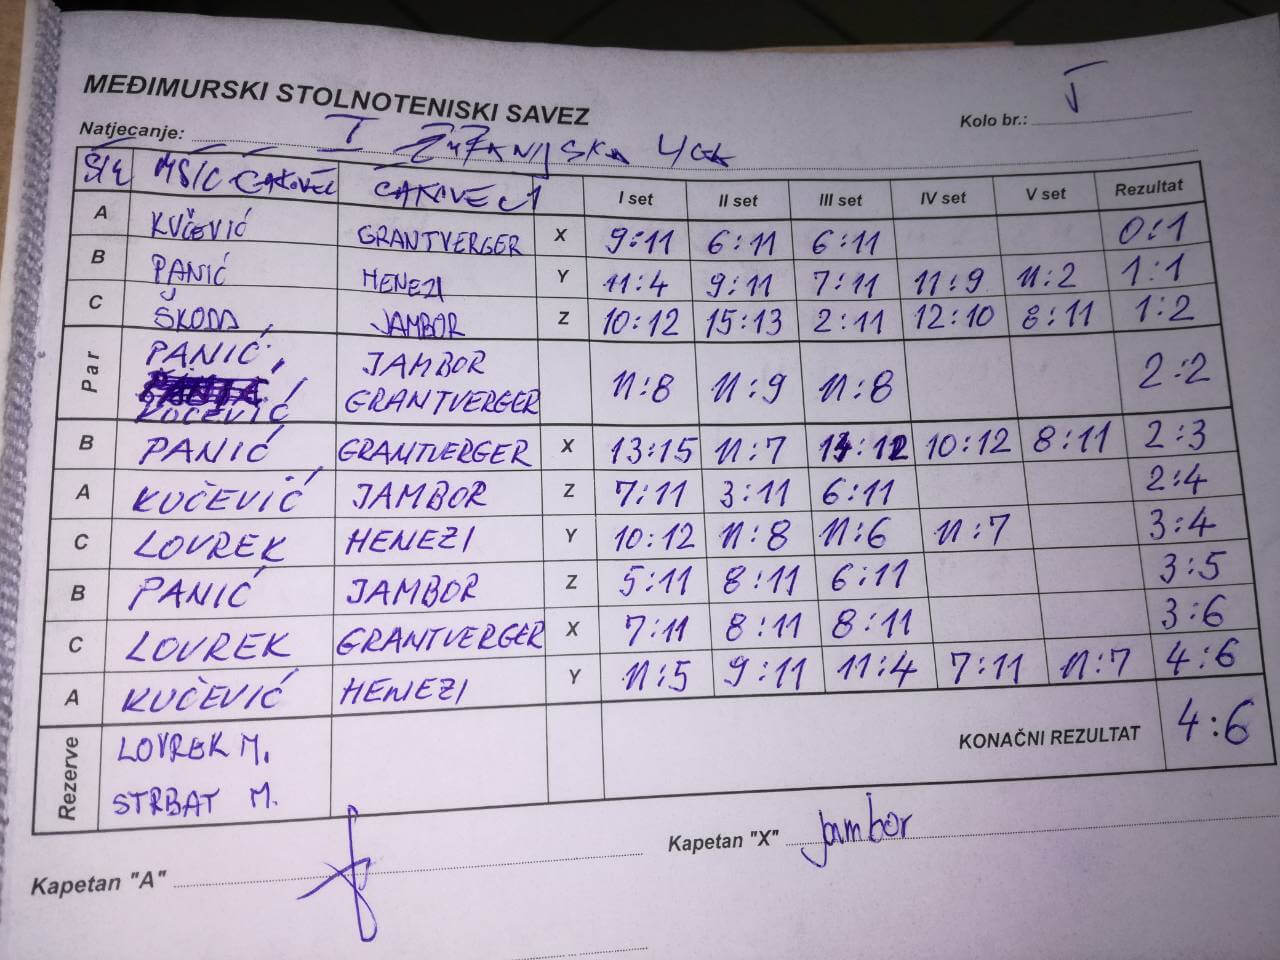 MEĐIMURSKI STOLNOTENISKI SAVEZ
Kolo br.: V
Natjecanje: I ŽUPANIJSKA LIGA
MSIC-ČAKOVEC ČAKOVEC 1 I set II set III set IV set V set Rezultat
A KUČEVIĆ GRANTVERGER X 9:11 6:11 6:11 0:1
B PANIĆ HENEZI Y 11:4 9:11 7:11 11:9 11:2 1:1
C ŠKODA JAMBOR Z 10:12 15:13 2:11 12:10 8:11 1:2
Par PANIĆ, JAMBOR 11:8 11:9 11:8 2:2
KUČEVIĆ GRANTVERGER
B PANIĆ GRANTVERGER X 13:15 11:7 14:12 10:12 8:11 2:3
A KUČEVIĆ JAMBOR Z 7:11 3:11 6:11 2:4
C LOVREK HENEZI Y 10:12 11:8 11:6 11:7 3:4
B PANIĆ JAMBOR Z 5:11 8:11 6:11 3:5
C LOVREK GRANTVERGER X 7:11 8:11 8:11 3:6
A KUČEVIĆ HENEZI Y 11:5 9:11 11:4 7:11 11:7 4:6
Rezerve LOVREK M. KONAČNI REZULTAT 4:6
STRBAT M.
Kapetan "A" Kapetan "X" Jambor